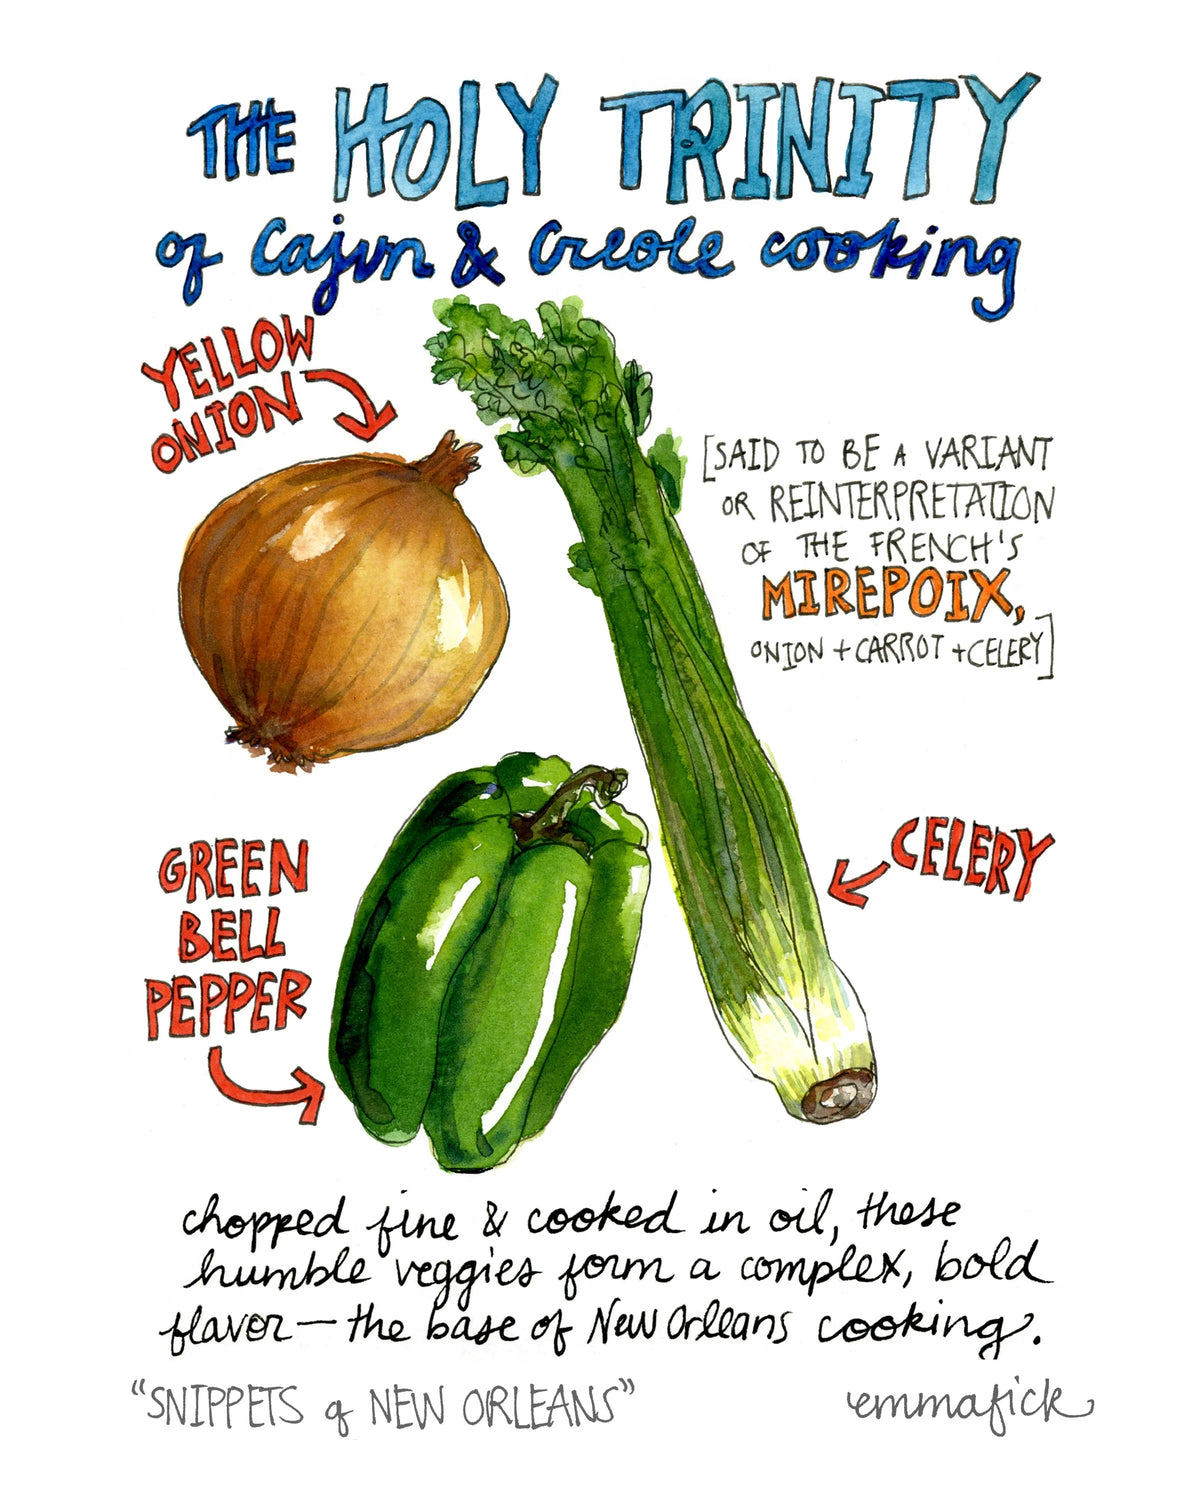 THE HOLY TRINITY
of Cajun & Creole cooking
YELLOW
ONION
[SAID TO BE A VARIANT
OR REINTERPRETATION
OF THE FRENCH'S
MIREPOIX,
ONION + CARROT + CELERY]
CELERY
GREEN
BELL
PEPPER
chopped fine & cooked in oil, these
humble veggies form a complex, bold
flavor — the base of New Orleans cooking.
"SNIPPETS of NEW ORLEANS"
emmafick